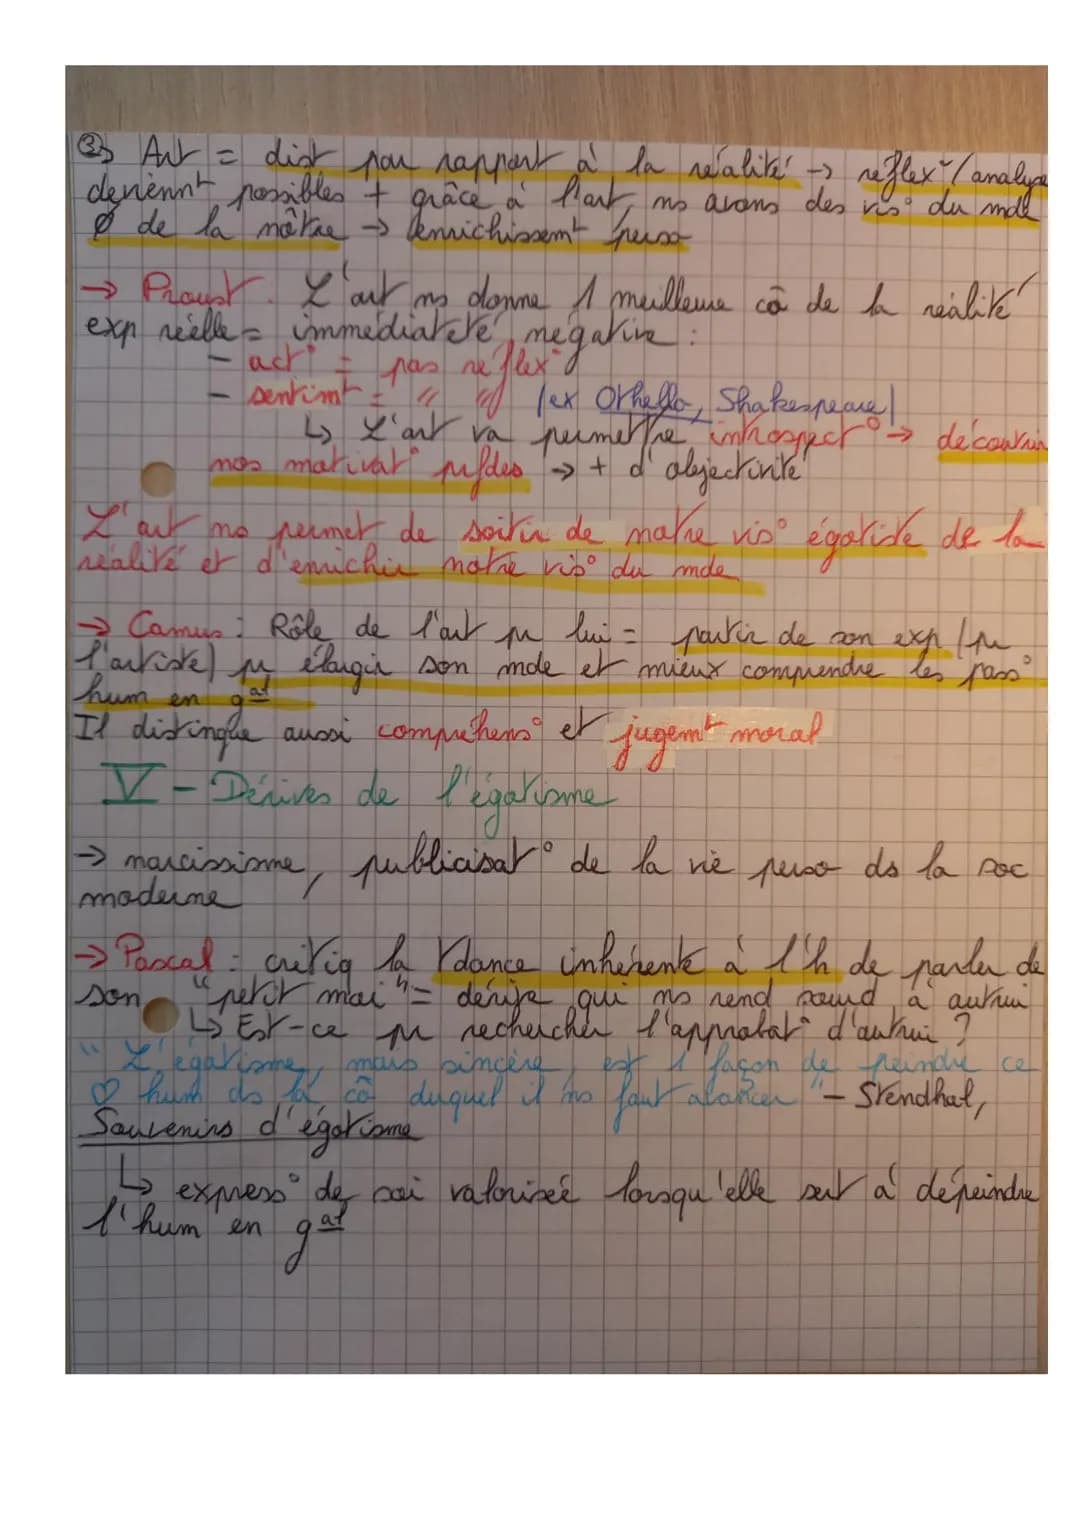 ③ Art = dist par rapport à la réalité → réflex°/analyse
devienn^t possibles + grâce à l'art, ns avons des vis° du mde
≠ de la nôtre → enrichissem^t perso
→ Proust : L'art ns donne 1 meilleure co de la réalité
exp réelle = immédiateté, négative :
- act° = pas réflex°
- sentim^t = " " (ex Othello, Shakespeare)
↳ L'art va permettre introspect° → découvrir
nos motivat° pfdes → + d'objectivité
L'art ns permet de sortir de notre vis° égotiste de la
réalité et d'enrichir notre vis° du mde
→ Camus : Rôle de l'art pr lui = partir de son exp (pr
l'artiste) pr élargir son mde et mieux comprendre les pass°
hum en g^al
Il distingue aussi compréhens° et jugem^t moral
V - Dérives de l'égotisme
→ narcissisme, publicisat° de la vie perso ds la soc
moderne
→ Pascal : critiq la tdance inhérente à l'h de parler de
son "petit moi" = dérive qui ns rend sourd à autrui
↳ Est-ce pr rechercher l'approbat° d'autrui ?
"L'égotisme, mais sincère, est 1 façon de peindre ce
♡ hum ds la co duquel il ns faut avancer" - Stendhal,
Souvenirs d'égotisme
↳ express° de soi valorisée lorsqu'elle sert à dépeindre
l'hum en g^al